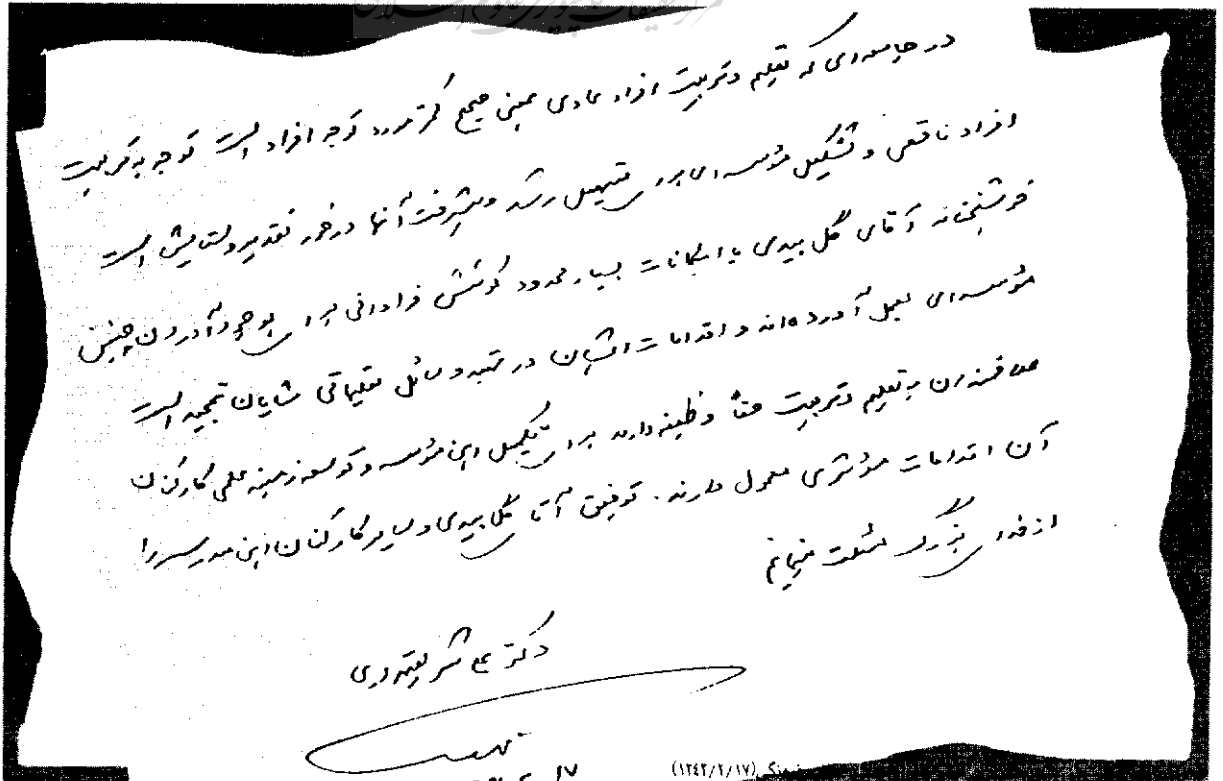 مرکز تحقیقات کامپیوتری علوم اسلامی
در جامعه‌ای که تعلیم و تربیت افراد عادی بمعنی صحیح کمتر مورد توجه افراد است توجه به تربیت
افراد ناقص و تشکیل مؤسسه‌ای برای تسهیل رشد و پیشرفت آنها درخور تقدیر و ستایش است
خوشبختانه آقای گل بیدی با امکانات بسیار محدود کوشش فراوانی برای بوجود آوردن چنین
مؤسسه‌ای بعمل آورده‌اند و اقدامات ایشان در تهیه وسائل تعلیماتی شایان تمجید است
علاقمندان به تعلیم و تربیت حقاً وظیفه دارند برای تکمیل این مؤسسه و توسعه زمینه علمی کارکنان
آن اقدامات مؤثری معمول دارند. توفیق آقای گل بیدی و سایر کارکنان این مدرسه را
از خدای بزرگ مسئلت مینمایم
دکتر علی شریعتمداری
۱۷
(۱۳۴۳/۲/۱۷)